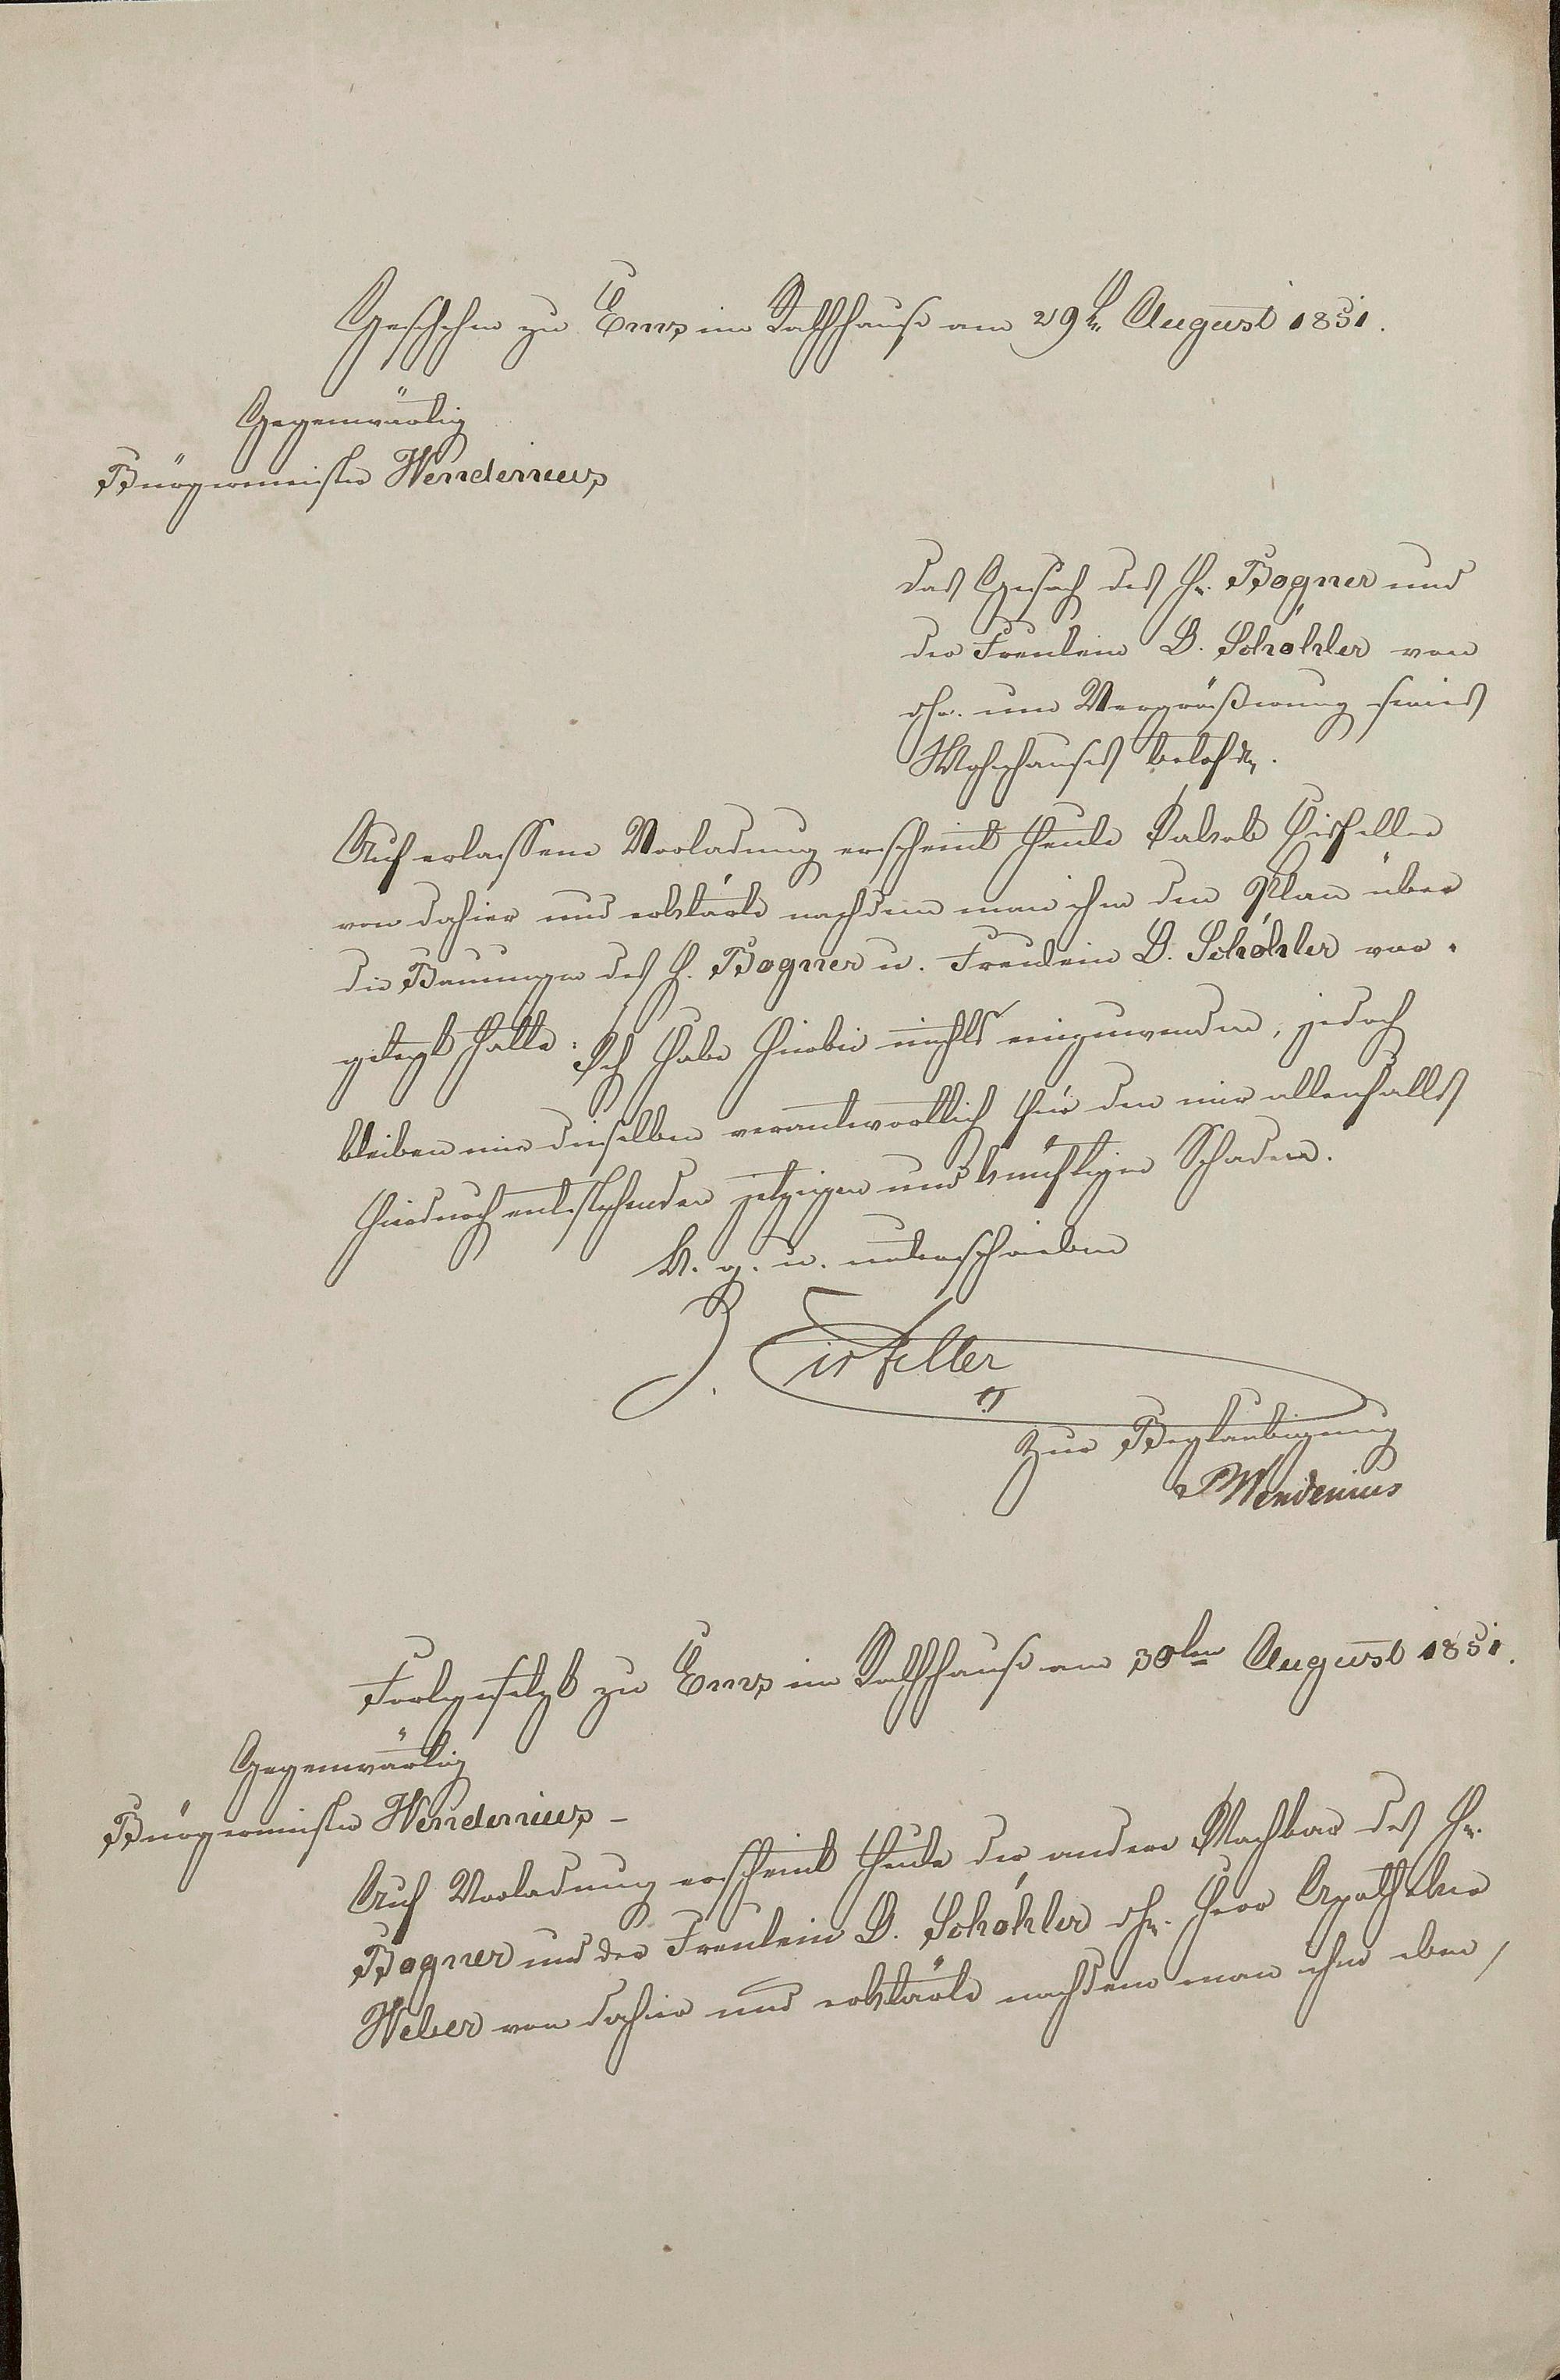 Geschehen zu Ems im Rathhause am 29t August 1851.
Gegenwärtig
Bürgermeister Wendenius
Das Gesuch des H. Bogner und
der Freulein B. Schöhler von
hr. um Vergrößerung seines
Wohnhauses betref.
Auf erlassene Vorladung erscheint heute Jakob Eisfeller
von dahier und erklärte nachdem man ihm den Plan über
die Bauungen des H. Bogner u. Freulein B. Schöhler vor-
gelegt hatte: Ich habe hierbei nichts einzuwenden, jedoch
bleiben mir dieselben verantwortlich für den mir allenfalls
hierdurch entstehenden jetzigen und künftigen Schaden.
V. g. u. unterschrieben
J. Eisfeller
Zur Beglaubigung
Wendenius
Fortgesetzt zu Ems im Rathhause am 30ten August 1851.
Gegenwärtig
Bürgermeister Wendenius -
Auf Vorladung erscheint heute der andere Nachbar des H.
Bogner und der Freulein B. Schöhler Herr Apotheker
Weber von dahier und erklärte nachdem man ihm eben /